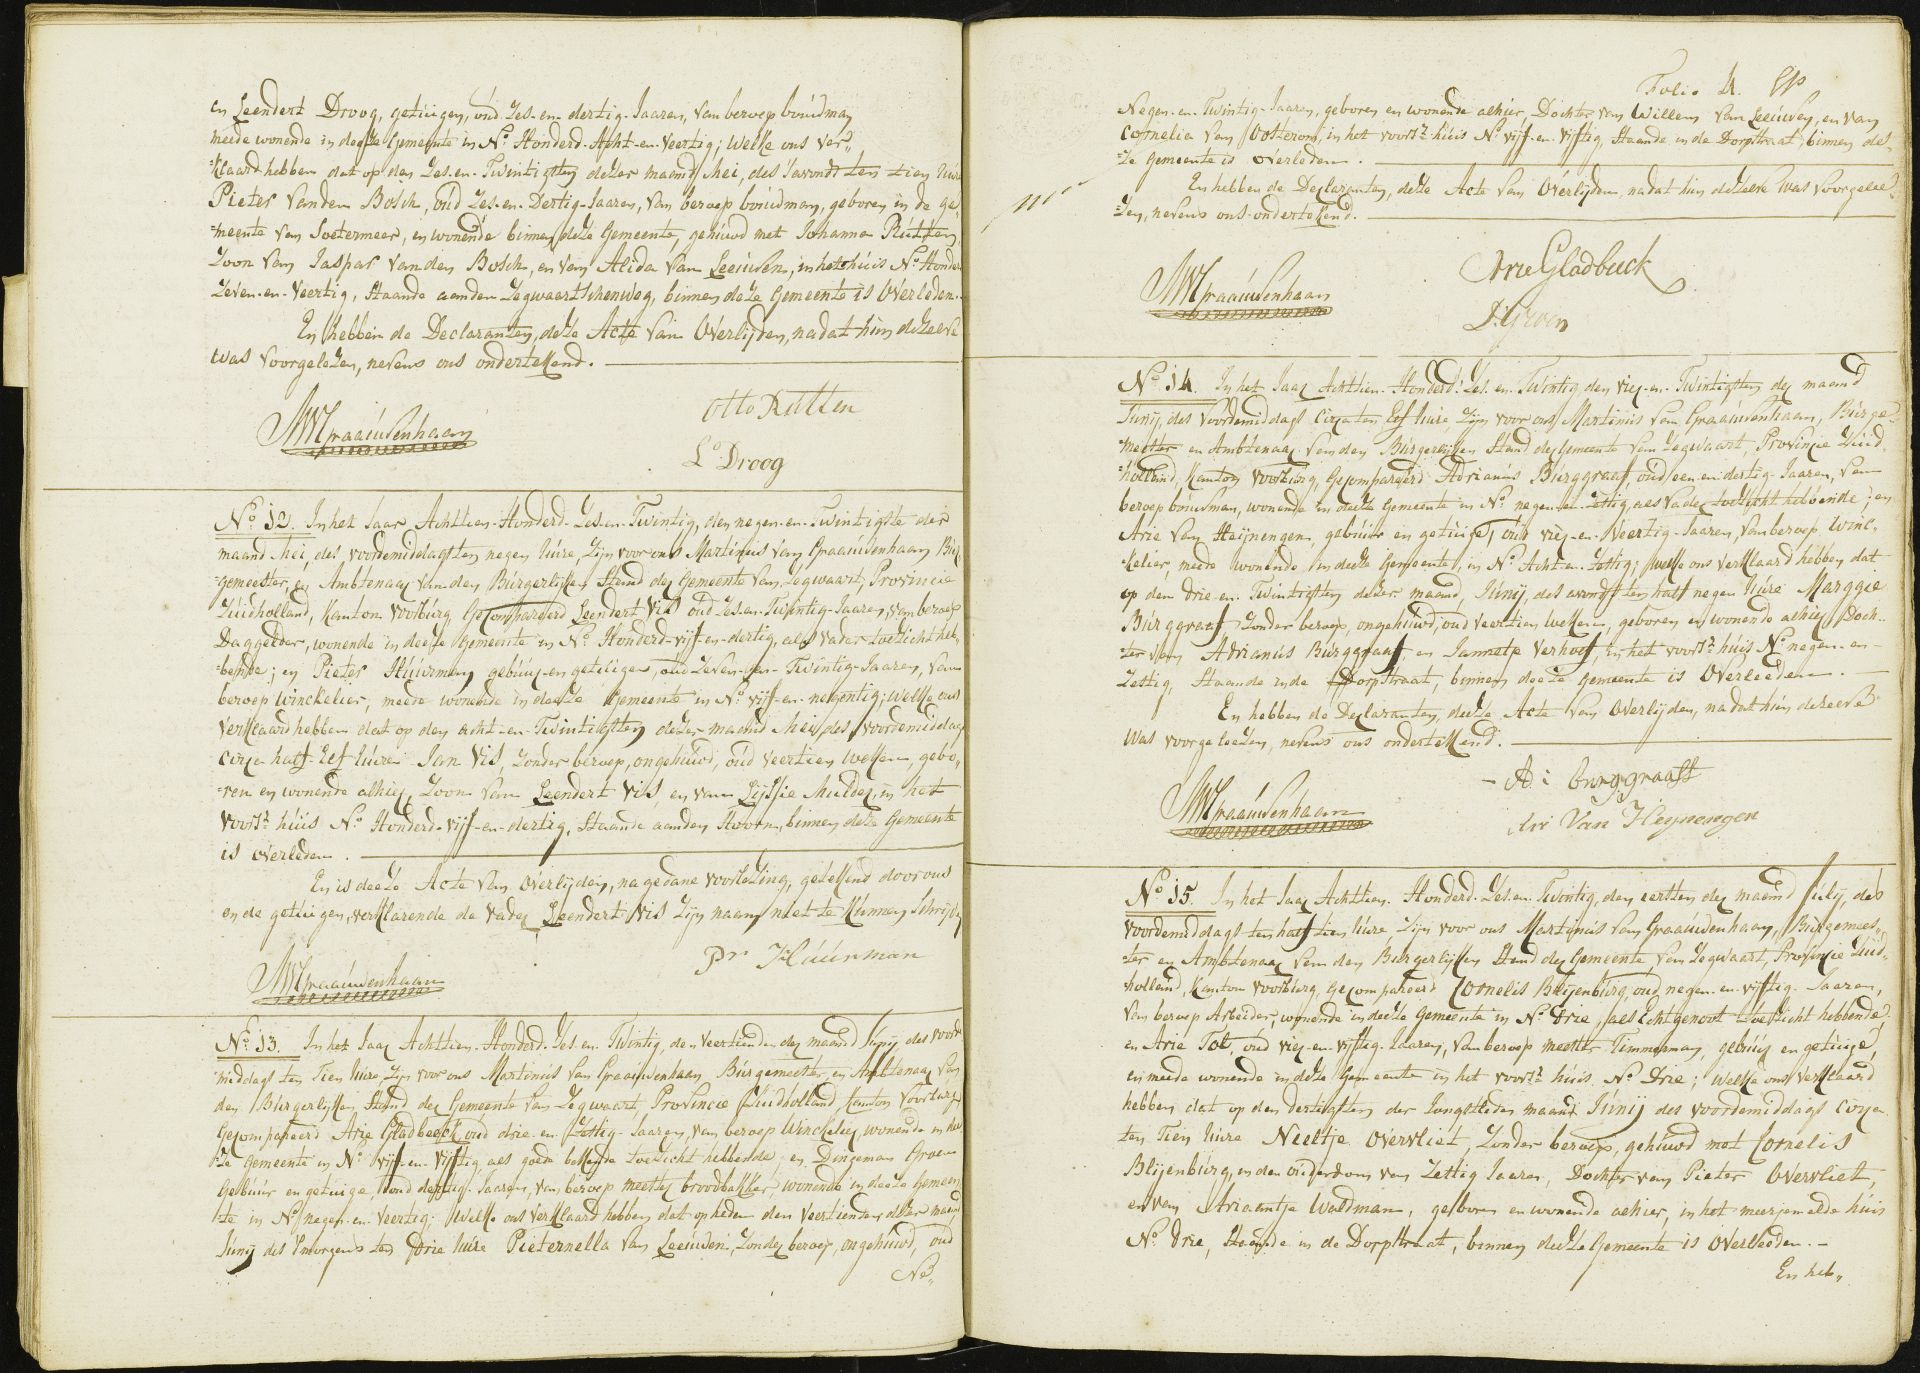 en Leendert Droog, getuigen, oud Zes-en-dertig-Jaaren, van beroep bouwman
meede wonende in deeze Gemeente in No. Honderd-Acht-en-Veertig; Welke ons ver-
-klaard hebben dat op den Zes-en-Twintigsten dezer maand Mei, des avonds ten tien Uure
Pieter van den Bosch, oud Zes-en-Dertig-Jaaren, van beroep bouwman, geboren in de ge-
-meente van Soetermeer, en wonende binnen deze Gemeente, gehuwd met Johanna Rutten,
Zoon van Jaspar van den Bosch, en van Alida van Leeuwen, in het huis No. Honderd
Zeven-en-Veertig, Staande aan den Zegwaartschenweg, binnen deze Gemeente is Overleden.
En hebben de Declaranten, deze Acte van Overlijden, nadat hun dezelve
was voorgelezen, nevens ons ondertekend.
MVGraauwenhaan
Otto Rutten
Ld Droog
No. 12. In het Jaar Achttien-Honderd-Zes-en-Twintig, den negen-en-Twintigste der
maand Mei, des voordemiddags ten negen Uure, Zijn voor ons Martinus van Graauwenhaan Bur-
-gemeester, en Ambtenaar van den Burgerlijken Stand der Gemeente van Zegwaart, Provincie
Zuidholland, Kanton Voorburg, Gecompareerd Leendert Vis oud Zes-en-Twintig-Jaaren, van beroep
Daggelder, wonende in deeze Gemeente in No. Honderd-vijf-en-dertig, als vader toezicht heb-
bende; en Pieter Huurman gebuur en getuige, oud Zeven-en-Twintig-Jaaren, van
beroep winckelier, meede wonende in deeze Gemeente in No. vijf-en-negentig; welke ons
verklaard hebben dat op den acht-en-Twintigsten dezer maand Mei des voordemiddags
circa half Elf Uure Jan Vis, Zonder beroep, ongehuwd, oud veertien weken, gebo-
-ren en wonende alhier, Zoon van Leendert Vis, en van Lijsje Mulder, in het
voorsz. huis No. Honderd-vijf-en-dertig, Staande aan den Voorn, binnen deze Gemeente
is overleden.
En is deeze Acte van Overlijden, na gedane voorlezing, getekend door ons
en de getuigen, verklarende de vader Leendert Vis Zijn naam niet te kunnen Schrijven
MVGraauwenhaan
Pr Huurman
No. 13. In het Jaar Achttien-Honderd-Zes-en-Twintig, den veertienden der maand Junij des voorde
middags ten Tien Uure, Zijn voor ons Martinus van Graauwenhaan Burgemeester, en Ambtenaar van
den Burgerlijken Stand der Gemeente van Zegwaart, Provincie Zuidholland, Kanton Voorburg
Gecompareerd Arie Gladbeeck oud drie-en-Zestig-Jaaren, van beroep Winckelier, wonende in dee-
Ze Gemeente in No. vijf-en-vijftig, als goede bekende toezicht hebbende; en Dingeman Groen
Gebuur en getuige, oud dertig-Jaaren, van beroep meester broodbakker, wonende in deeze Gemeen-
te in No. negen-en-Veertig; Welke ons verklaard hebben dat op heden den veertienden dezer maand
Junij des smorgens ten drie Uure Pieternella van Leeuwen, Zonder beroep, ongehuwd, oud
Ne-
Folio 4.
Negen-en-Twintig-Jaaren, geboren en wonende alhier, Dochter van Willem van Leeuwen, en van
Cornelia van Oosterom, in het voorsz. huis No. vijf-en-vijftig, Staande in de Dorpstraat, binnen dee-
-ze Gemeente is Overleden.
En hebben de Declaranten, deeze Acte van Overlijden, nadat hun dezelve was voorgele-
-zen, nevens ons ondertekend.
MVGraauwenhaan
Arie Gladbeeck
D. Groen
No. 14. In het Jaar Achttien-Honderd-Zes-en-Twintig den vier-en-Twintigsten der maand
Junij, des Voordemiddags Circa ten Elf Uure, Zijn voor ons Martinus van Graauwenhaan, Burge-
meester en Ambtenaar van den Burgerlijken Stand der Gemeente van Zegwaart, Provincie Zuid-
-holland, Kanton Voorburg, Gecompareerd Adrianus Burggraaf, oud een-en-dertig-Jaaren, van
beroep bouwman, wonende in deeze Gemeente in No. negen-en-Zestig, als vader toezicht hebbende; en
Arie van Heijnengen, gebuur en getuige, oud vier-en-Veertig-Jaaren, van beroep winc-
-kelier, meede wonende in deeze Gemeente, in No. Acht-en-Zestig; welke ons verklaard hebben dat
op den drie-en-Twintigsten dezer maand, Junij, des avonds ten half negen Uure Margje
Burggraaf Zonder beroep, ongehuwd, oud veertien weken, geboren en wonende alhier, Doch-
-ter van Adrianus Burggraaf, en Jannetje Verhoef, in het voorsz. huis No. negen-en-
Zestig, Staande in de Dorpstraat, binnen deeze Gemeente is Overleeden.
En hebben de Declaranten, deeze Acte van Overlijden, nadat hun dezelve
was voorgeleezen, nevens ons ondertekend.
MVGraauwenhaan
A: Burggraaff
Arie Van Heynengen
No. 15. In het Jaar Achttien-Honderd-Zes-en-Twintig, den eersten der maand Julij, des
voordemiddags ten half tien Uure Zijn voor ons Martinus van Graauwenhaan, Burgemees-
-ter en Ambtenaar van den Burgerlijken Stand der Gemeente van Zegwaart, Provincie Zuid-
-holland, Kanton Voorburg, Gecompareerd Cornelis Blijenburg, oud negen-en-vijftig-Jaaren,
van beroep Arbeider, wonende in deeze Gemeente in No. drie, als Echtgenoot toezicht hebbende
en Arie Tol, oud vier-en-vijftig-Jaaren, van beroep meester Timmerman, gebuur en getuige,
en meede wonende in deze Gemeente in het voorsz. huis No. Drie; welke ons verklaard
hebben dat op den dertigsten der Jongstleden maand Junij des voordemiddags circa
ten Tien Uure Neeltje Overvliet, Zonder beroep, gehuwd met Cornelis
Blijenburg, in den ouderdom van Zestig Jaaren, Dochter van Pieter Overvliet,
en van Ariaantje Waldman, geboren en wonende alhier, in het meergemelde huis
No. Drie, Staande in de Dorpstraat, binnen deeze Gemeente is Overleeden.
En heb-